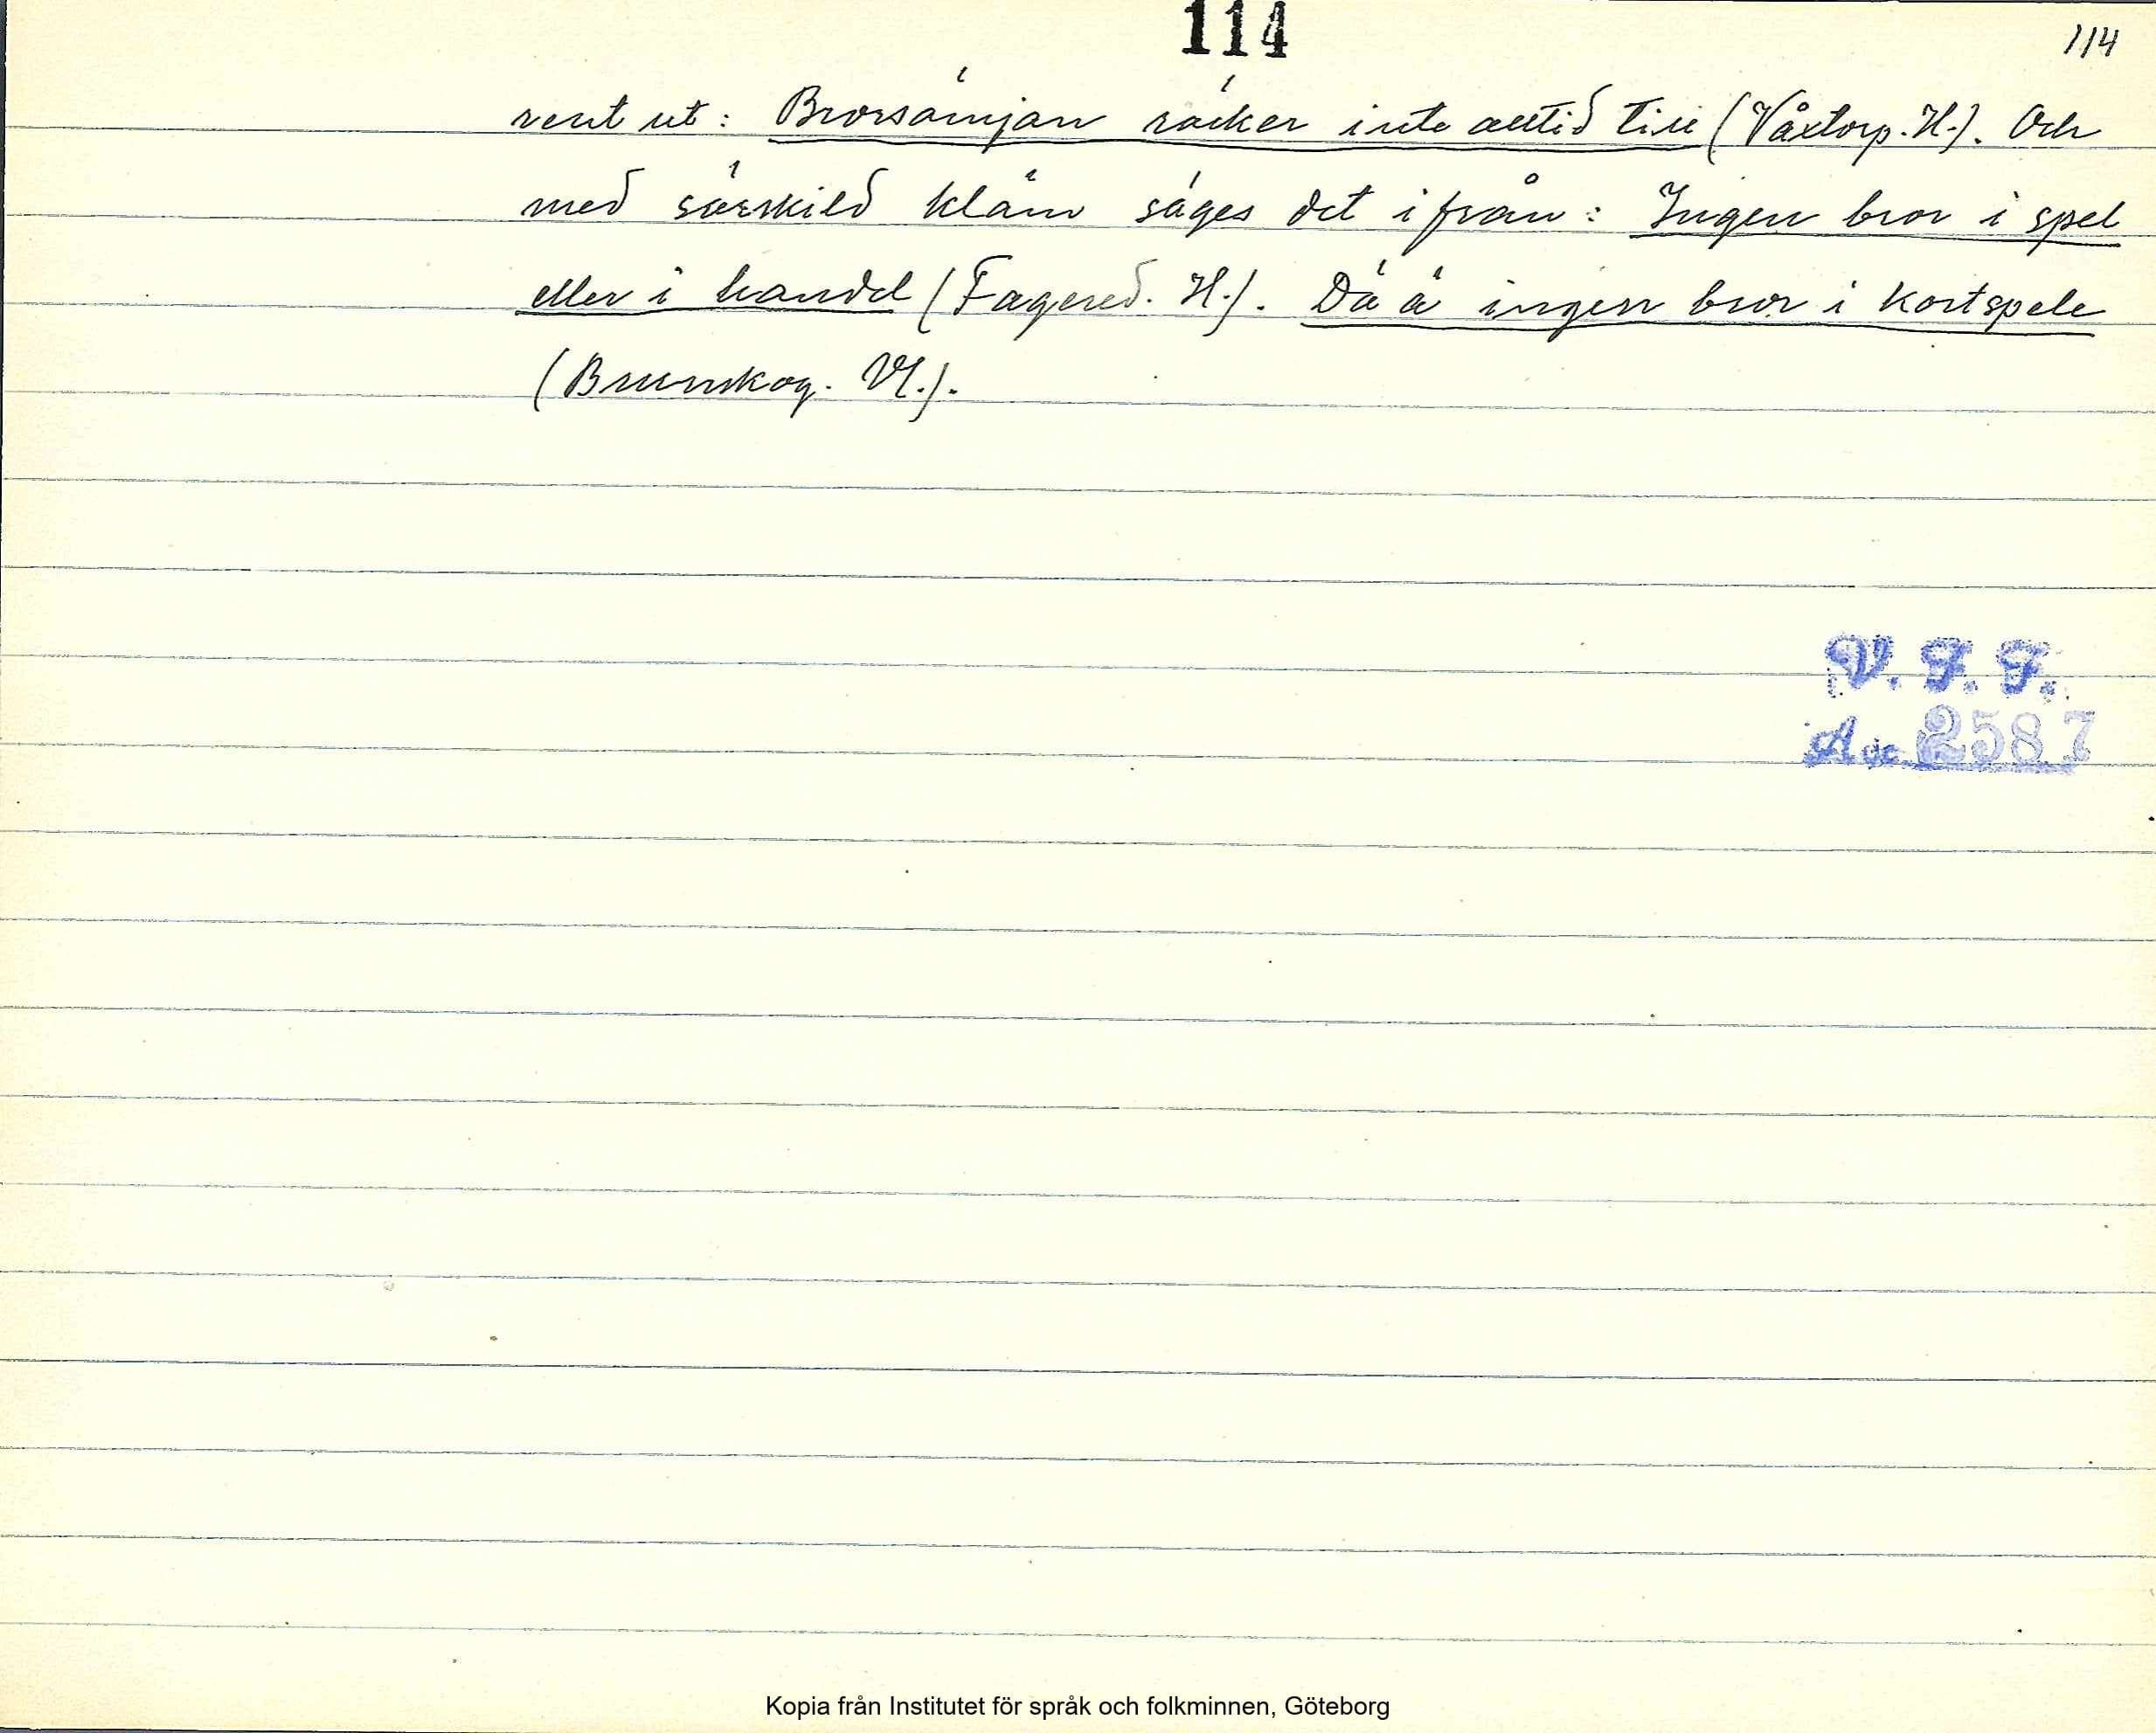 114
114
rent ut: Brorsämjan räcker inte alltid till (Våxtorp. H.). Och
med särskild kläm säges det ifrån: Ingen bror i spel
eller i handel (Fagered. H.). Dä ä ingen bror i kortspele
(Brunskog. Vl.).
V. F. F.
Acc. 2587
Kopia från Institutet för språk och folkminnen, Göteborg